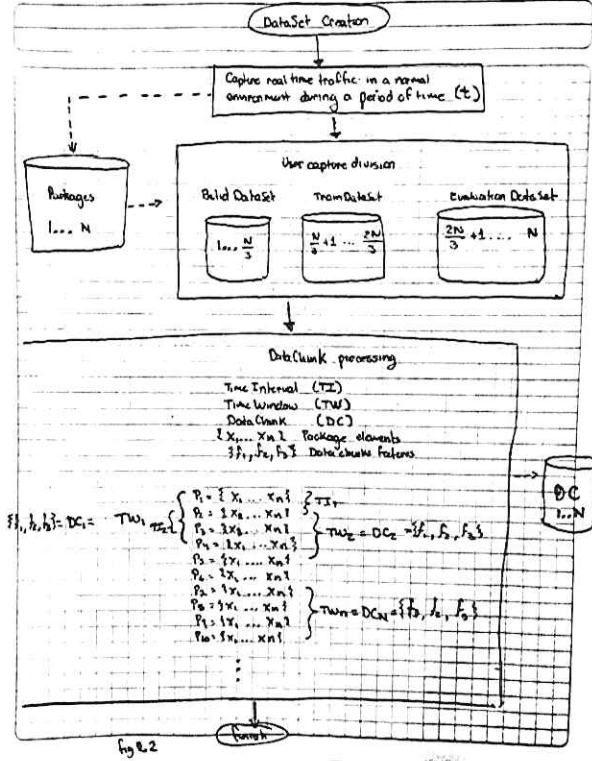 DataSet Creation
Capture real time traffic in a normal
environment during a period of time (t)
Packages
1... N
User capture division
Build DataSet
1... N/3
Train DataSet
N/3 +1 ... 2N/3
Evaluation DataSet
2N/3 +1 .... N
DataChunk processing
Time Interval (TI)
Time Window (TW)
DataChunk (DC)
{x1... xn} Package elements
{f1, f2, f3} Datachunks features
DC
1...N
{f1, f2, f3} = DC1 = TW1
P1 = {x1 ... xn}
P2 = {x1 ... xn}
P3 = {x1 ... xn}
P4 = {x1 ... xn}
P5 = {x1 ... xn}
TW2 = DC2 = {f1, f2, f3}
{x1 ... xn}
{x1 ... xn}
P8 = {x1 ... xn}
P9 = {x1 ... xn}
P10 = {x1 ... xn}
TWn = DCN = {f1, f2, f3}
finish